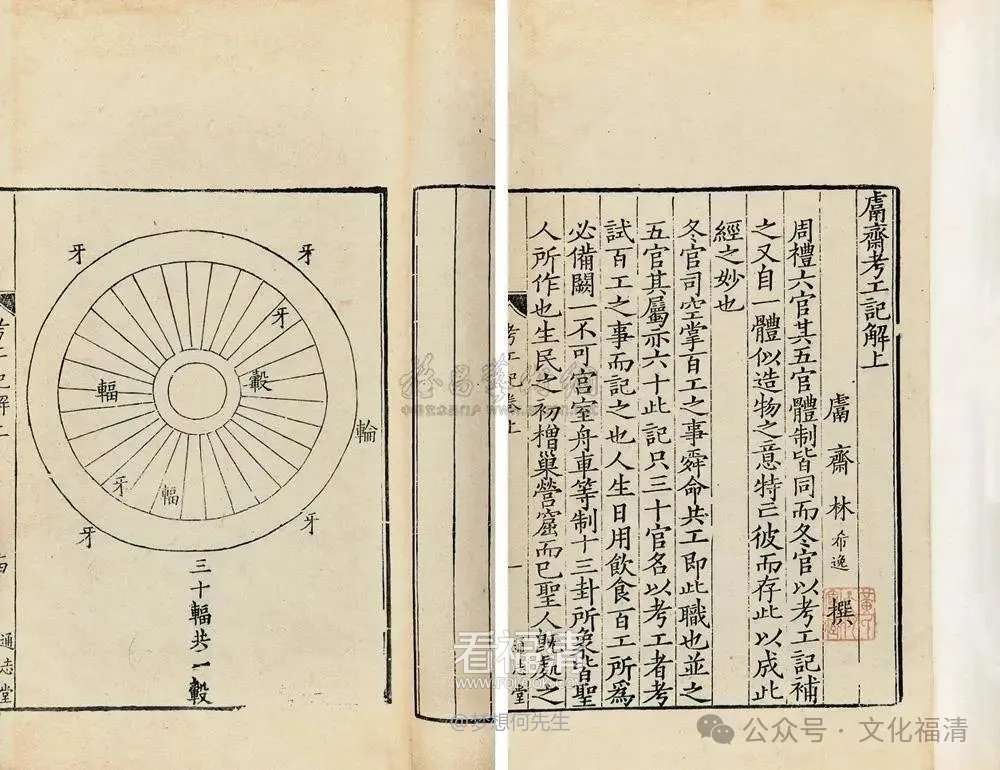 鬳齋考工記解上
鬳齋林希逸撰
周禮六官其五官體制皆同而冬官以考工記補
之又自一體似造物之意特亡彼而存此以成此
經之妙也
冬官司空掌百工之事舜命共工即此職也並之
五官其屬亦六十此記只三十官名以考工者考
試百工之事而記之也人生日用飲食百工所為
必備闕一不可宮室舟車等制十三卦所象皆聖
人所作也生民之初橧巢營窟而已聖人既處之
考工記卷上
一
志堂
牙
牙
牙
轂
輻
輪
牙
輻
牙
牙
三十輻共一轂
考工記解上
通志堂
看福清
@梦想何先生
公众号·文化福清